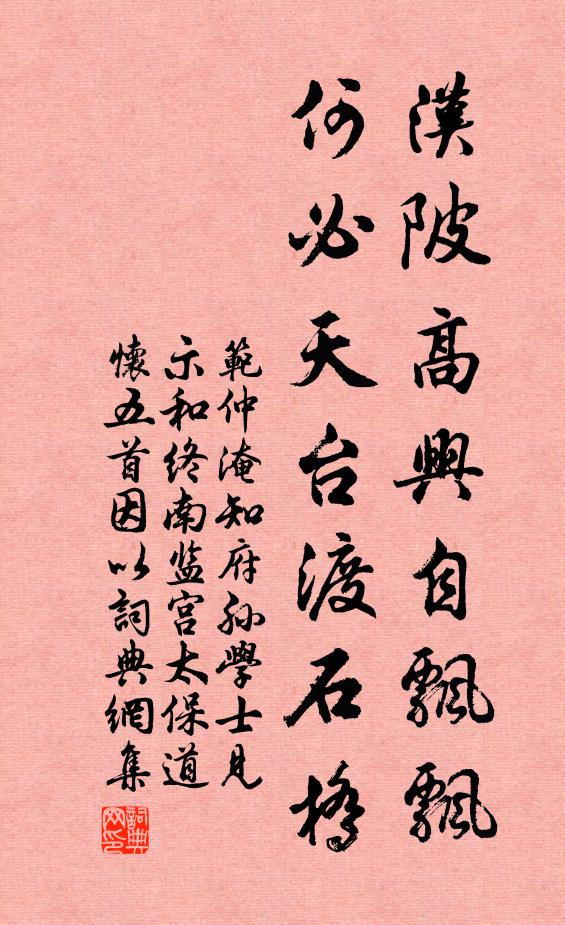 漢陂高興自飄飄
何必天台渡石橋
範仲淹知府孫學士見
示和終南监宮太保道
懷五首因以詞典網集
詞典网印